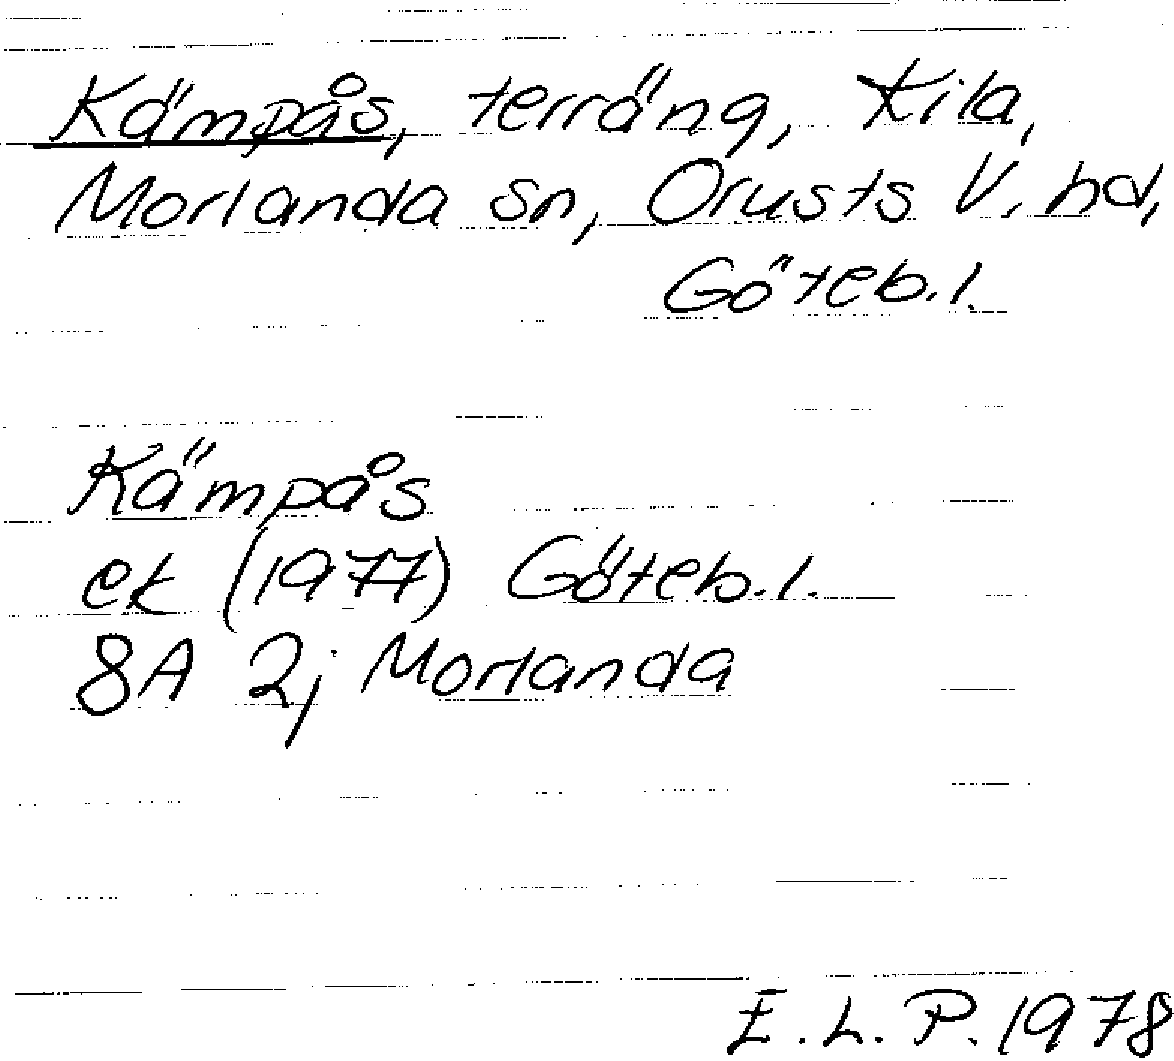 Kämpås, terräng, Kila,
Morlanda sn, Orusts V. hd,
Göteb. l.
Kämpås
ek (1977) Göteb. l.
8A 2j Morlanda
E. L. P. 1978